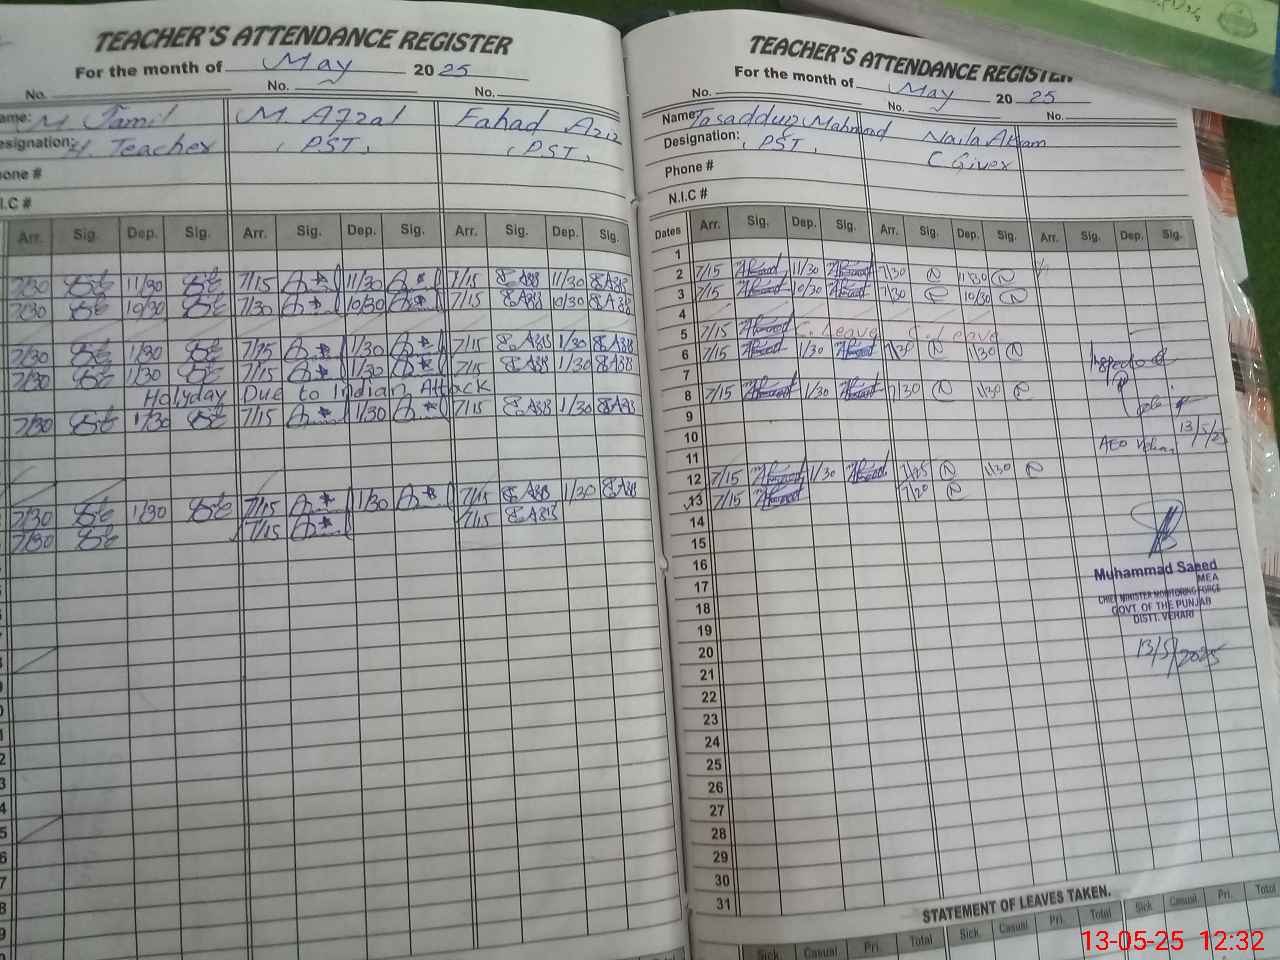 TEACHER'S ATTENDANCE REGISTER
For the month of May 2025
No. No. No.
ame: M Jamil M Afzal Fahad Aziz
esignation: H. Teacher (PST) (PST)
hone #
I.C #
Arr. Sig. Dep. Sig. Arr. Sig. Dep. Sig. Arr. Sig. Dep. Sig.
7/30 11/30 7/15 11/30 7/15 11/30
7/30 10/30 7/30 10/30 7/15 10/30
7/30 1/30 7/25 1/30 7/15 1/30
7/30 1/30 7/15 1/30 7/15 1/30
Holyday Due to Indian Attack
7/30 1/30 7/15 1/30 7/15 1/30
7/30 1/30 7/15 1/30 7/15 1/30
7/30 7/15 7/15
TEACHER'S ATTENDANCE REGISTER
For the month of May 2025
No. No. No.
Name: Tasadduq Mahmood Naila Akram
Designation: (PST) C Giver
Phone #
N.I.C #
Dates Arr. Sig. Dep. Sig. Arr. Sig. Dep. Sig. Arr. Sig. Dep. Sig.
1
2 7/15 11/30 7/30 11/30
3 7/15 10/30 7/30 10/30
4
5 7/15 C. Leave C. Leave
6 7/15 1/30 7/30 1/30
7
8 7/15 1/30 7/30 1/30
9
10
11
12 7/15 1/30 7/25 1/30
13 7/15 7/20
14
15
16
17
18
19
20
21
22
23
24
25
26
27
28
29
30
31
Inspected
13/5/25
AEO Vehari
Muhammad Saeed
MEA
CHIEF MINISTER MONITORING FORCE
GOVT. OF THE PUNJAB
DISTT. VEHARI
13/5/2025
STATEMENT OF LEAVES TAKEN.
Sick Casual Pri. Total Sick. Casual Pri. Total Sick Casual Pri. Total
13-05-25 12:32